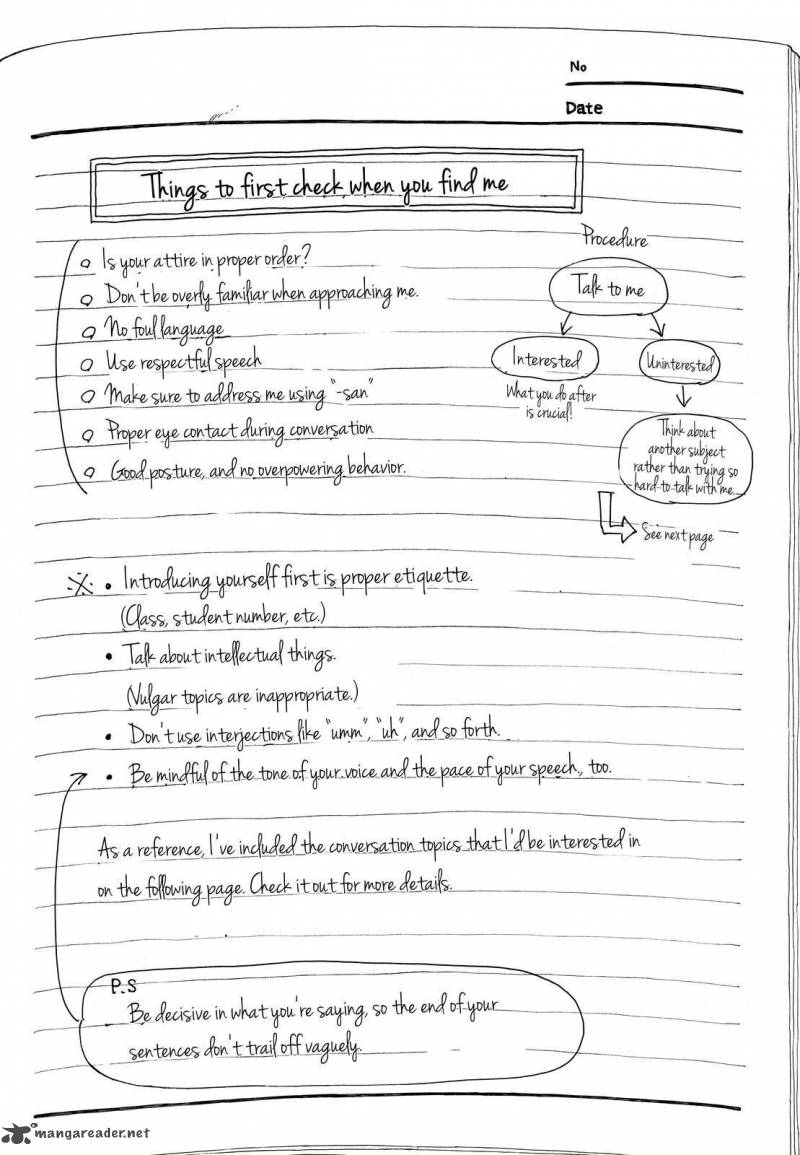 No
Date
Things to first check when you find me
Is your attire in proper order?
Don't be overly familiar when approaching me.
No foul language
Use respectful speech
Make sure to address me using "-san"
Proper eye contact during conversation
Good posture, and no overpowering behavior.
Procedure
Talk to me
Interested
What you do after
is crucial!
Uninterested
Think about
another subject
rather than trying so
hard to talk with me.
See next page
※ • Introducing yourself first is proper etiquette.
(Class, student number, etc.)
• Talk about intellectual things.
(Vulgar topics are inappropriate.)
• Don't use interjections like "umm", "uh", and so forth.
• Be mindful of the tone of your voice and the pace of your speech, too.
As a reference, I've included the conversation topics that I'd be interested in
on the following page. Check it out for more details.
P.S
Be decisive in what you're saying, so the end of your
sentences don't trail off vaguely.
mangareader.net